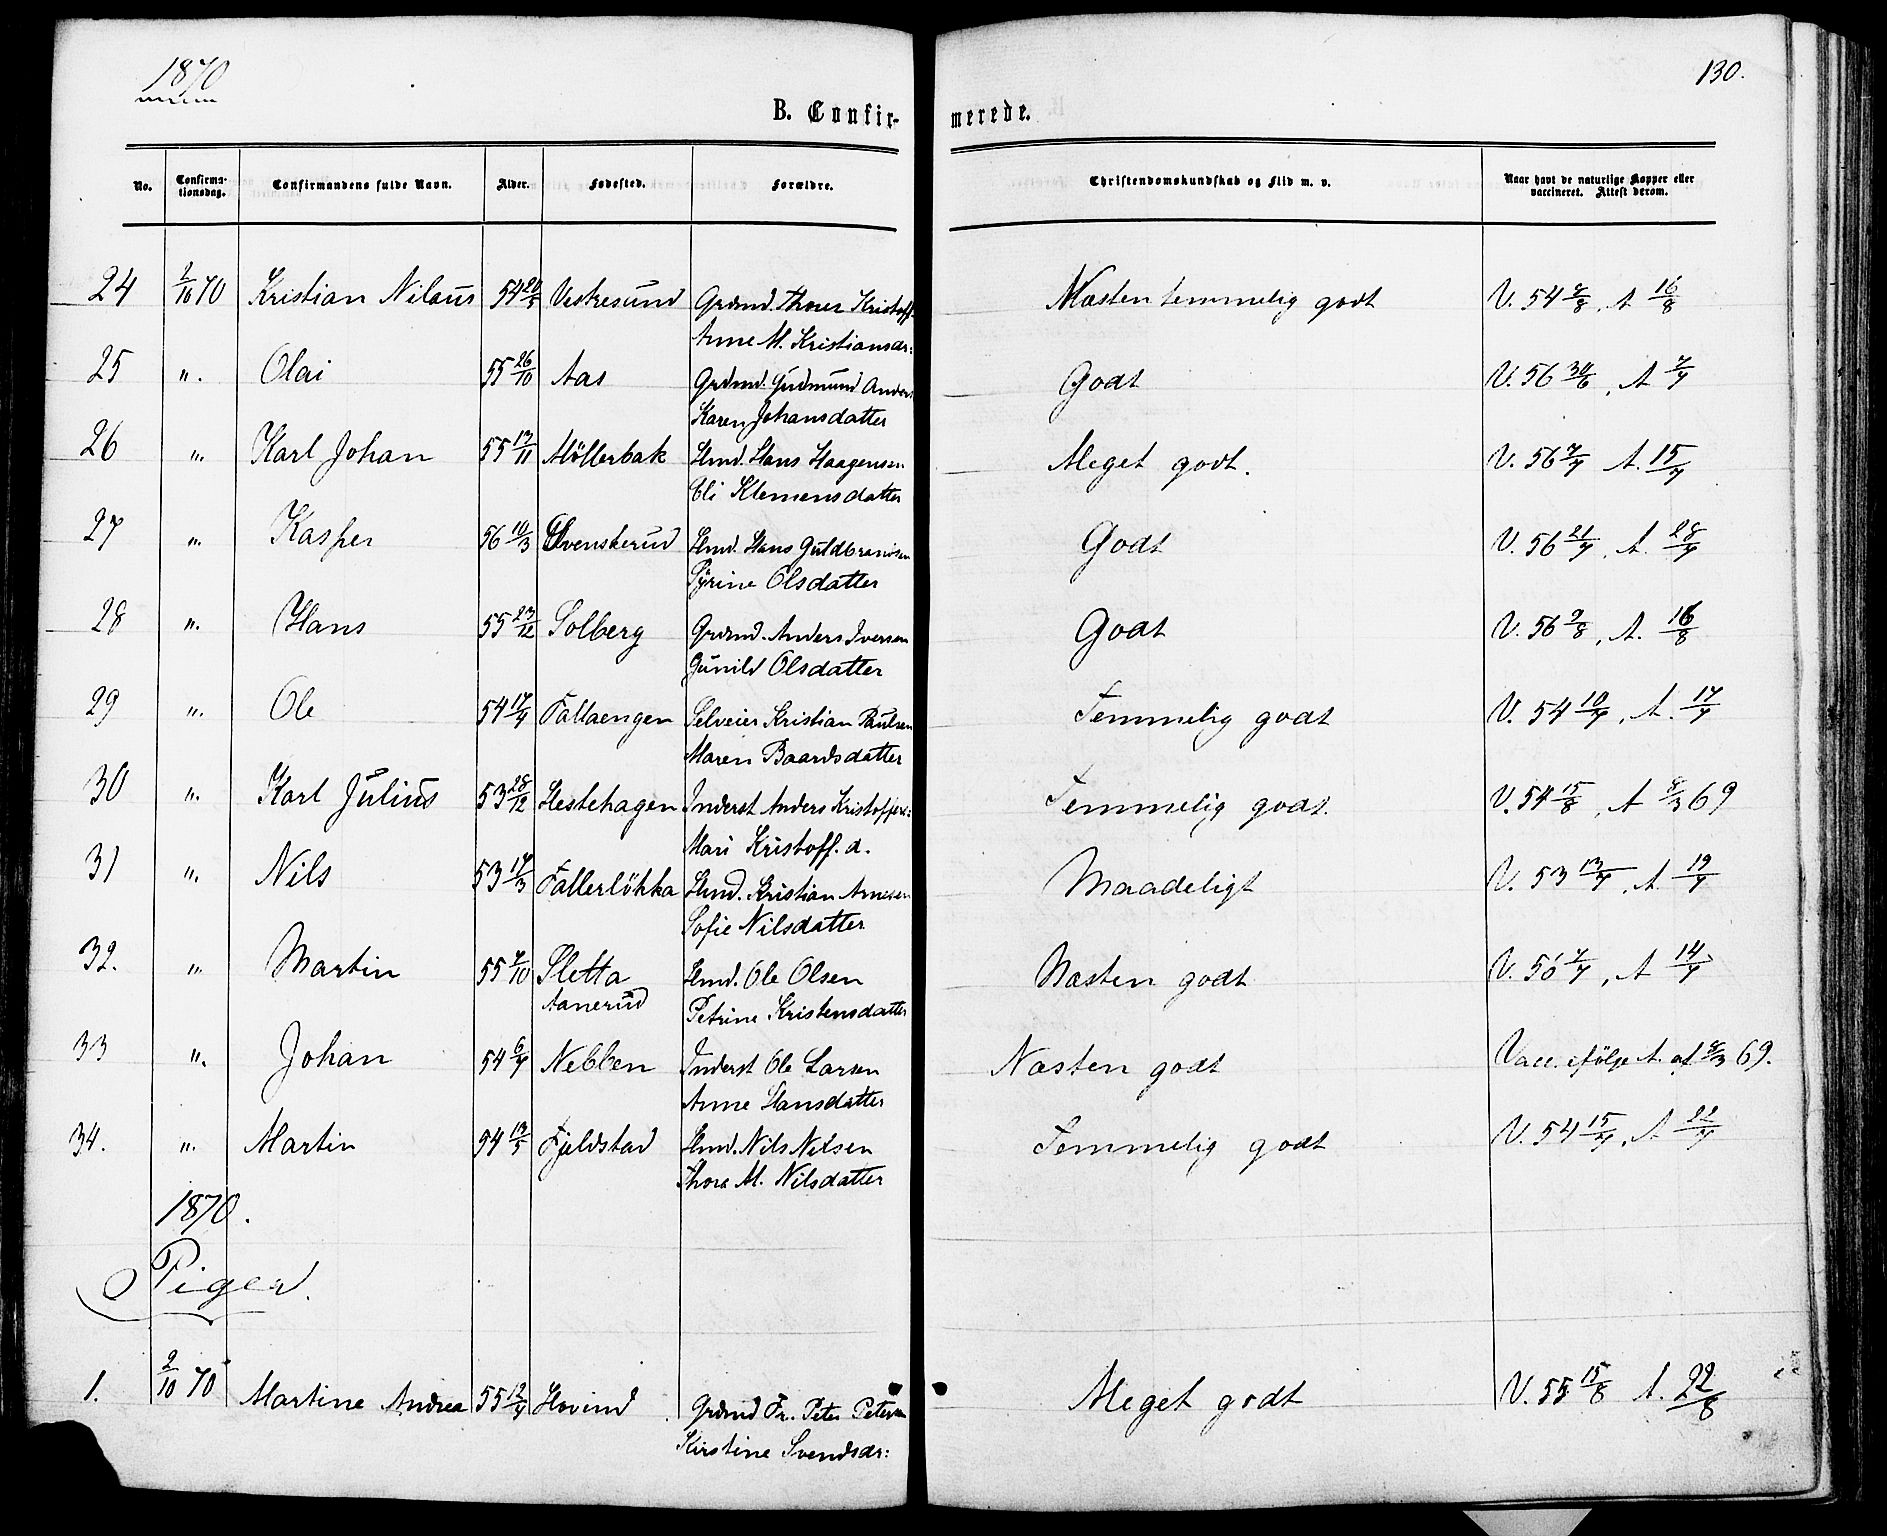 1870
130.
B. Confir-
merede.
No. Confirma-tionsdag. Confirmandens fulde Navn. Alder. Fødested. Forældre. Christendomskundskab og Flid m. v. Naar havt de naturlige Kopper eller vaccineret. Attest derom.
24 2/10 70 Kristian Nilaus 54 Vestresund Grdmd. Kristoff. Næsten temmelig godt V. 54 , A 16/8
Anne M. Kristiansdr:
25 „. Olai 55 26/10 Aas Grdmd. Gudmund Anders Godt V. 56 30/6, A 7/7
Karen Johansdatter
26 „. Karl Johan 55 13/11 Möllerbak Hmd. Hans Haagensen Meget godt. V. 56 7/7 A. 15/7
Eli Klemensdatter
27 „. Kasper 56 10/3 Svenskerud Hmd. Hans Guldbrandsen Godt V. 56 21/7, A. 28/7
Pyrine Olsdatter
28 „. Hans 55 23/12 Solberg Grdmd. Anders Iversen Godt V. 56 9/8, A. 16/8
Gunild Olsdatter
29 „. Ole 54 Fallaengen Selveier Kristian Paulsen Temmelig godt V. 54 10/7, A. 17/7
Maren Baardsdatter
30 „. Karl Julius 53 28/12 Hestehagen Inderst Anders Kristoffers: Temmelig godt. V. 54 15/8, A 8/3 69
Mari Kristoff. d.
31 „. Nils 53 17/3 Fallerlökka Hmd. Kristian Arnesen Maadeligt V. 53 , A. 19/7
Sofie Nilsdatter
32. „. Martin 55 7/10 Sletta Hmd. Ole Olsen Næsten godt V. 56 7/7, A 14/7
Aanerud Petrine Kristensdatter
33 „. Johan 54 6/7 Nebben Inderst Ole Larsen Næsten godt Vacc. ifølge A. af 8/3 69.
Anne Hansdatter
34. „. Martin 54 Fjeldstad Hmd. Nils Nilsen Temmelig godt V. 54 15/7, A. 22/7
Thora M. Nilsdatter
1870.
Piger.
1. 2/10 70 Martine Andrea 55 Hovind Grdmd Fr. Peter Petersen Meget godt V. 55 15/8 A. 22/8
Kirstine Svendsdr: